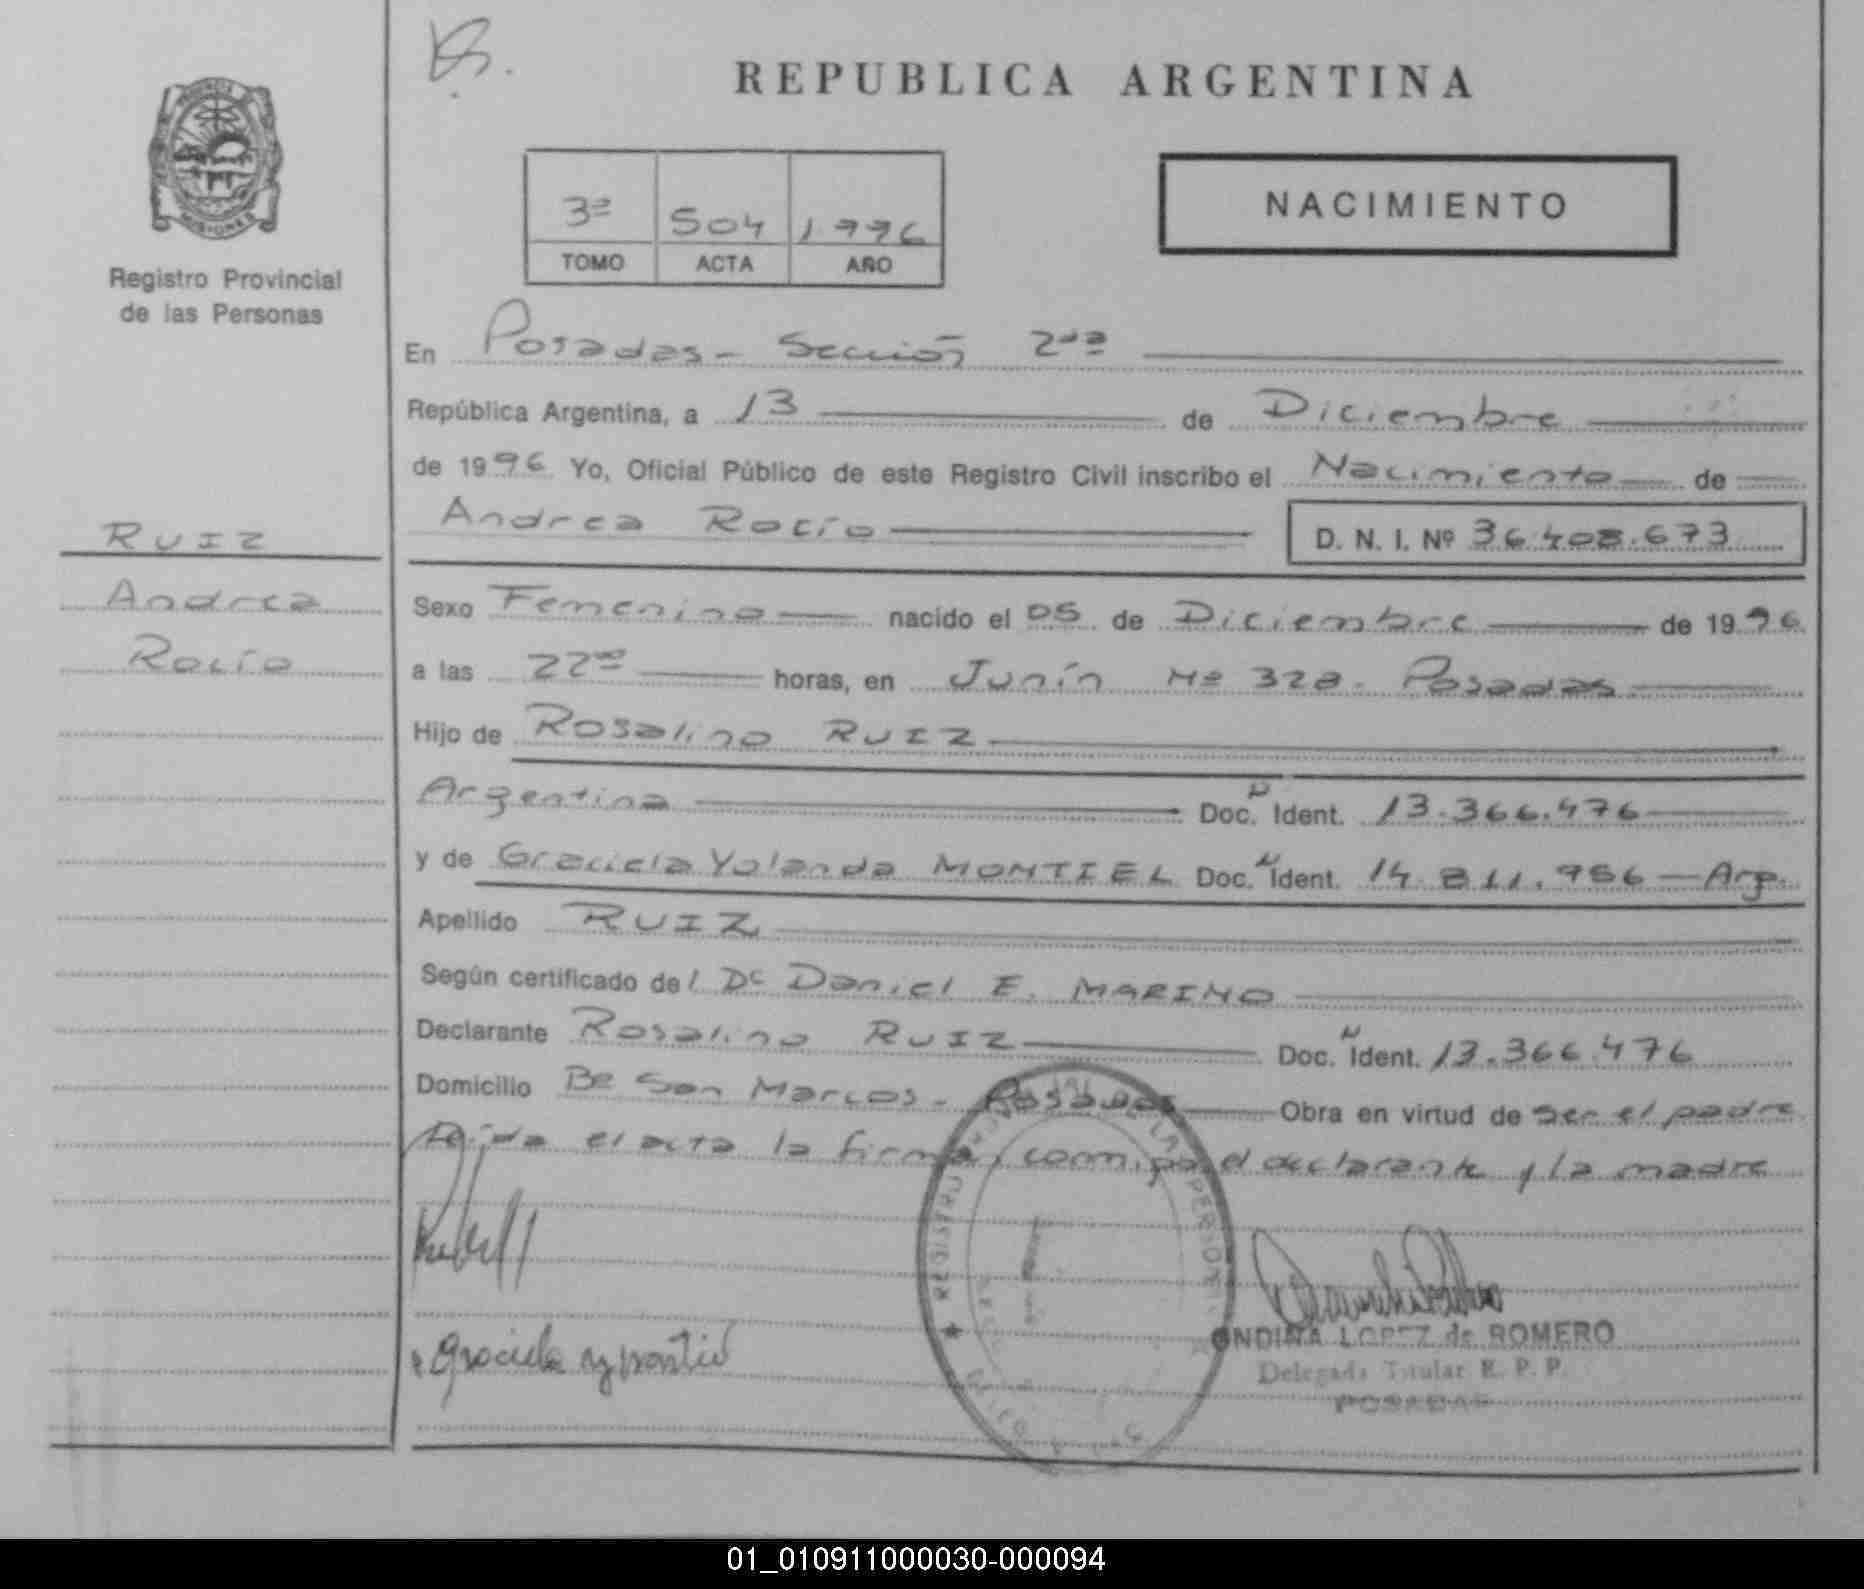 REPUBLICA ARGENTINA
PROVINCIA DE
MISIONES
Registro Provincial
de las Personas
3º 504 1996
TOMO ACTA AÑO
NACIMIENTO
En Posadas - Sección 2da
República Argentina, a 13 de Diciembre
de 1996 Yo, Oficial Público de este Registro Civil inscribo el Nacimiento de
Andrea Rocío
D. N. I. Nº 36.408.673
RUIZ
Andrea
Rocío
Sexo Femenino nacido el 05 de Diciembre de 1996
a las 22 00 horas, en Junín Nº 328. Posadas
Hijo de Rosalino RUIZ
Argentina Doc. N Ident. 13.366.476
y de Graciela Yolanda MONTIEL Doc. N Ident. 14.811.956 - Arg.
Apellido RUIZ
Según certificado del Dr Daniel E. MARINO
Declarante Rosalino RUIZ Doc. N Ident. 13.366.476
Domicilio Bº San Marcos - Posadas Obra en virtud de ser el padre
Leída el acta la firman conmigo, el declarante y la madre
REGISTRO PROVINCIAL DE LAS PERSONAS
ONDINA LOPEZ de ROMERO
Delegada Titular R. P. P.
POSADAS
01_010911000030-000094